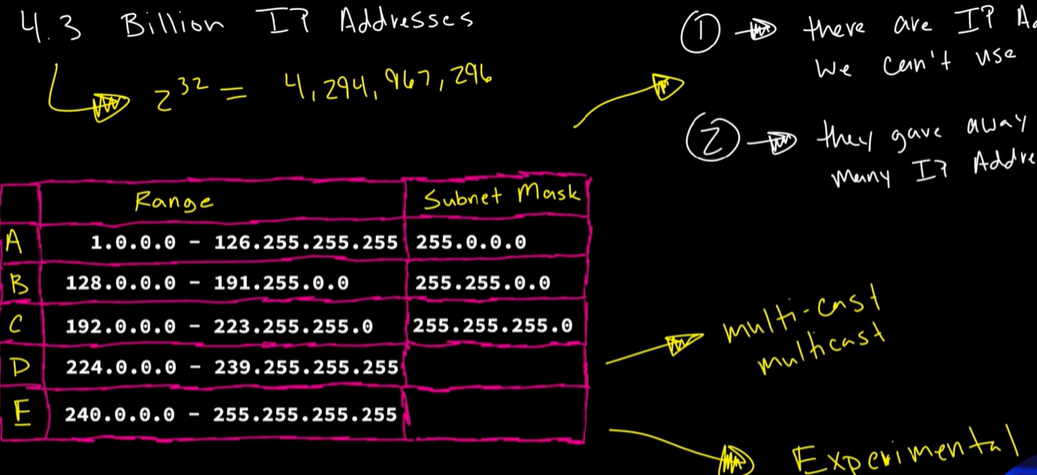 4.3 Billion IP Addresses
2^32 = 4,294,967,296
1 there are IP
We can't use
2 they gave away
many IP
Range Subnet Mask
A 1.0.0.0 - 126.255.255.255 255.0.0.0
B 128.0.0.0 - 191.255.0.0 255.255.0.0
C 192.0.0.0 - 223.255.255.0 255.255.255.0
D 224.0.0.0 - 239.255.255.255
E 240.0.0.0 - 255.255.255.255
multi-cast
multicast
Experimental